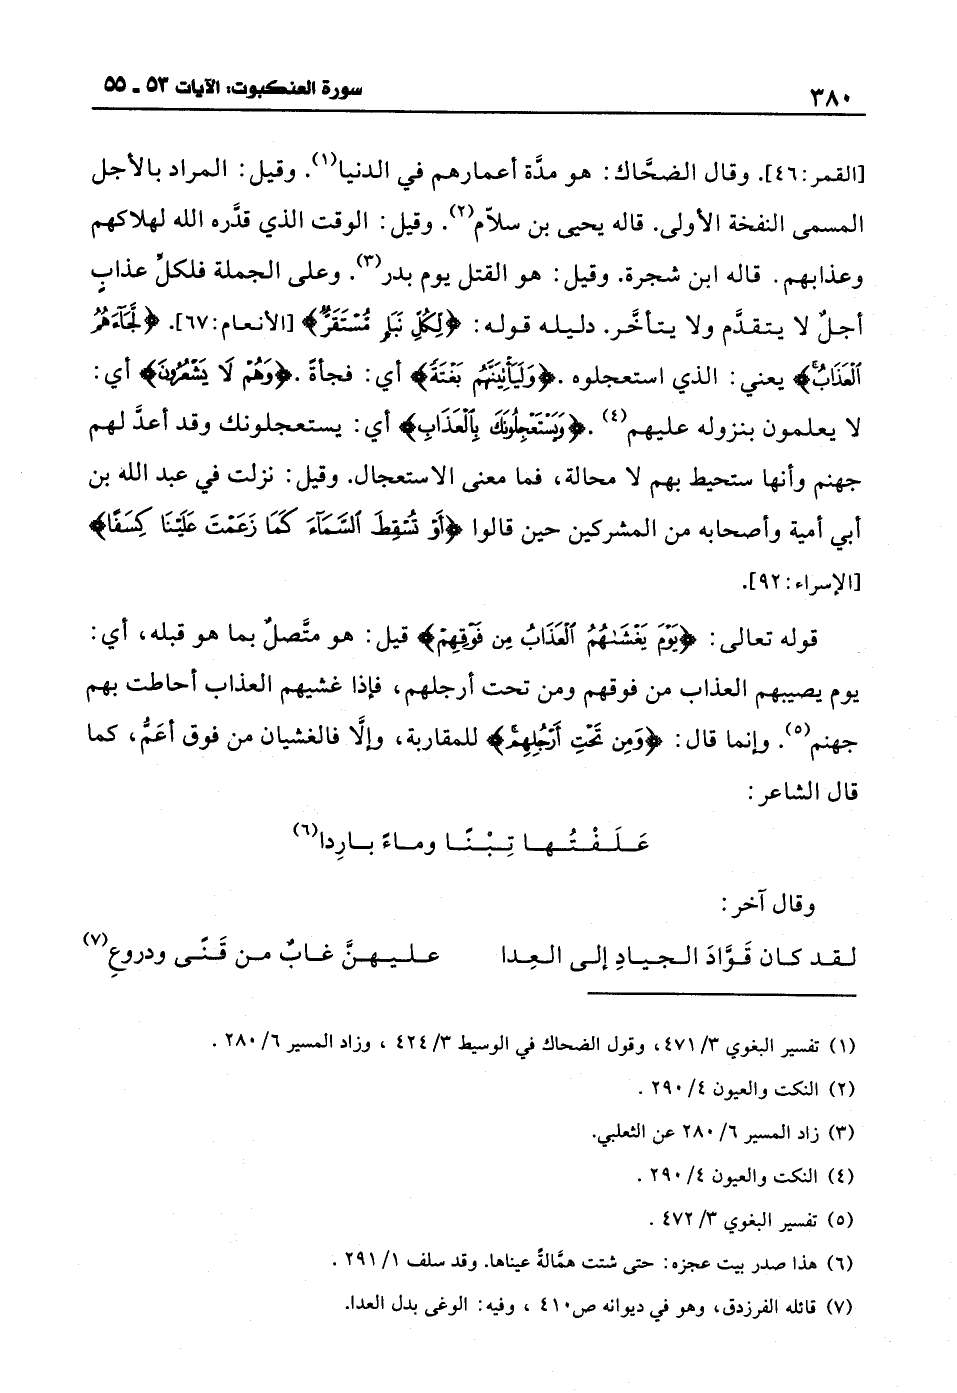 ٣٨٠
سورة العنكبوت: الآيات ٥٣ ـ ٥٥
[القمر:٤٦]. وقال الضحَّاك: هو مدَّة أعمارهم في الدنيا(١). وقيل: المراد بالأجل
المسمى النفخة الأولى. قاله يحيى بن سلاّم(٢). وقيل: الوقت الذي قدَّره الله لهلاكهم
وعذابهم. قاله ابن شجرة. وقيل: هو القتل يوم بدر(٣). وعلى الجملة فلكلِّ عذابٍ
أجلٌ لا يتقدَّم ولا يتأخَّر. دليله قوله: ﴿لِكُلِّ نَبَإٍ مُّسْتَقَرٌّ﴾ [الأنعام:٦٧]. ﴿لَّجَآءَهُمُ
ٱلْعَذَابُ﴾ يعني: الذي استعجلوه. ﴿وَلَيَأْتِيَنَّهُم بَغْتَةً﴾ أي: فجأةً. ﴿وَهُمْ لَا يَشْعُرُونَ﴾ أي:
لا يعلمون بنزوله عليهم(٤). ﴿وَيَسْتَعْجِلُونَكَ بِٱلْعَذَابِ﴾ أي: يستعجلونك وقد أعدَّ لهم
جهنم وأنها ستحيط بهم لا محالة، فما معنى الاستعجال. وقيل: نزلت في عبد الله بن
أبي أمية وأصحابه من المشركين حين قالوا ﴿أَوْ تُسْقِطَ ٱلسَّمَآءَ كَمَا زَعَمْتَ عَلَيْنَا كِسَفًا﴾
[الإسراء:٩٢].
قوله تعالى: ﴿يَوْمَ يَغْشَىٰهُمُ ٱلْعَذَابُ مِن فَوْقِهِمْ﴾ قيل: هو متَّصلٌ بما هو قبله، أي:
يوم يصيبهم العذاب من فوقهم ومن تحت أرجلهم، فإذا غشيهم العذاب أحاطت بهم
جهنم(٥). وإنما قال: ﴿وَمِن تَحْتِ أَرْجُلِهِمْ﴾ للمقاربة، وإلَّا فالغشيان من فوق أعَمُّ، كما
قال الشاعر:
عَـلَـفْـتُـهـا تِـبْـنًـا ومـاءً بـارِدا(٦)
وقال آخر:
لقـد كـان قَـوَّادَ الـجيـادِ إلـى الـعِـدا عـلـيـهـنَّ غـابٌ مـن قَـنًـى ودروعِ(٧)
(١) تفسير البغوي ٣/ ٤٧١، وقول الضحاك في الوسيط ٣/ ٤٢٤ ، وزاد المسير ٦/ ٢٨٠ .
(٢) النكت والعيون ٤/ ٢٩٠ .
(٣) زاد المسير ٦/ ٢٨٠ عن الثعلبي.
(٤) النكت والعيون ٤/ ٢٩٠ .
(٥) تفسير البغوي ٣/ ٤٧٢ .
(٦) هذا صدر بيت عجزه: حتى شتت همَّالةً عيناها. وقد سلف ١/ ٢٩١ .
(٧) قائله الفرزدق، وهو في ديوانه ص٤١٠ ، وفيه: الوغى بدل العدا.